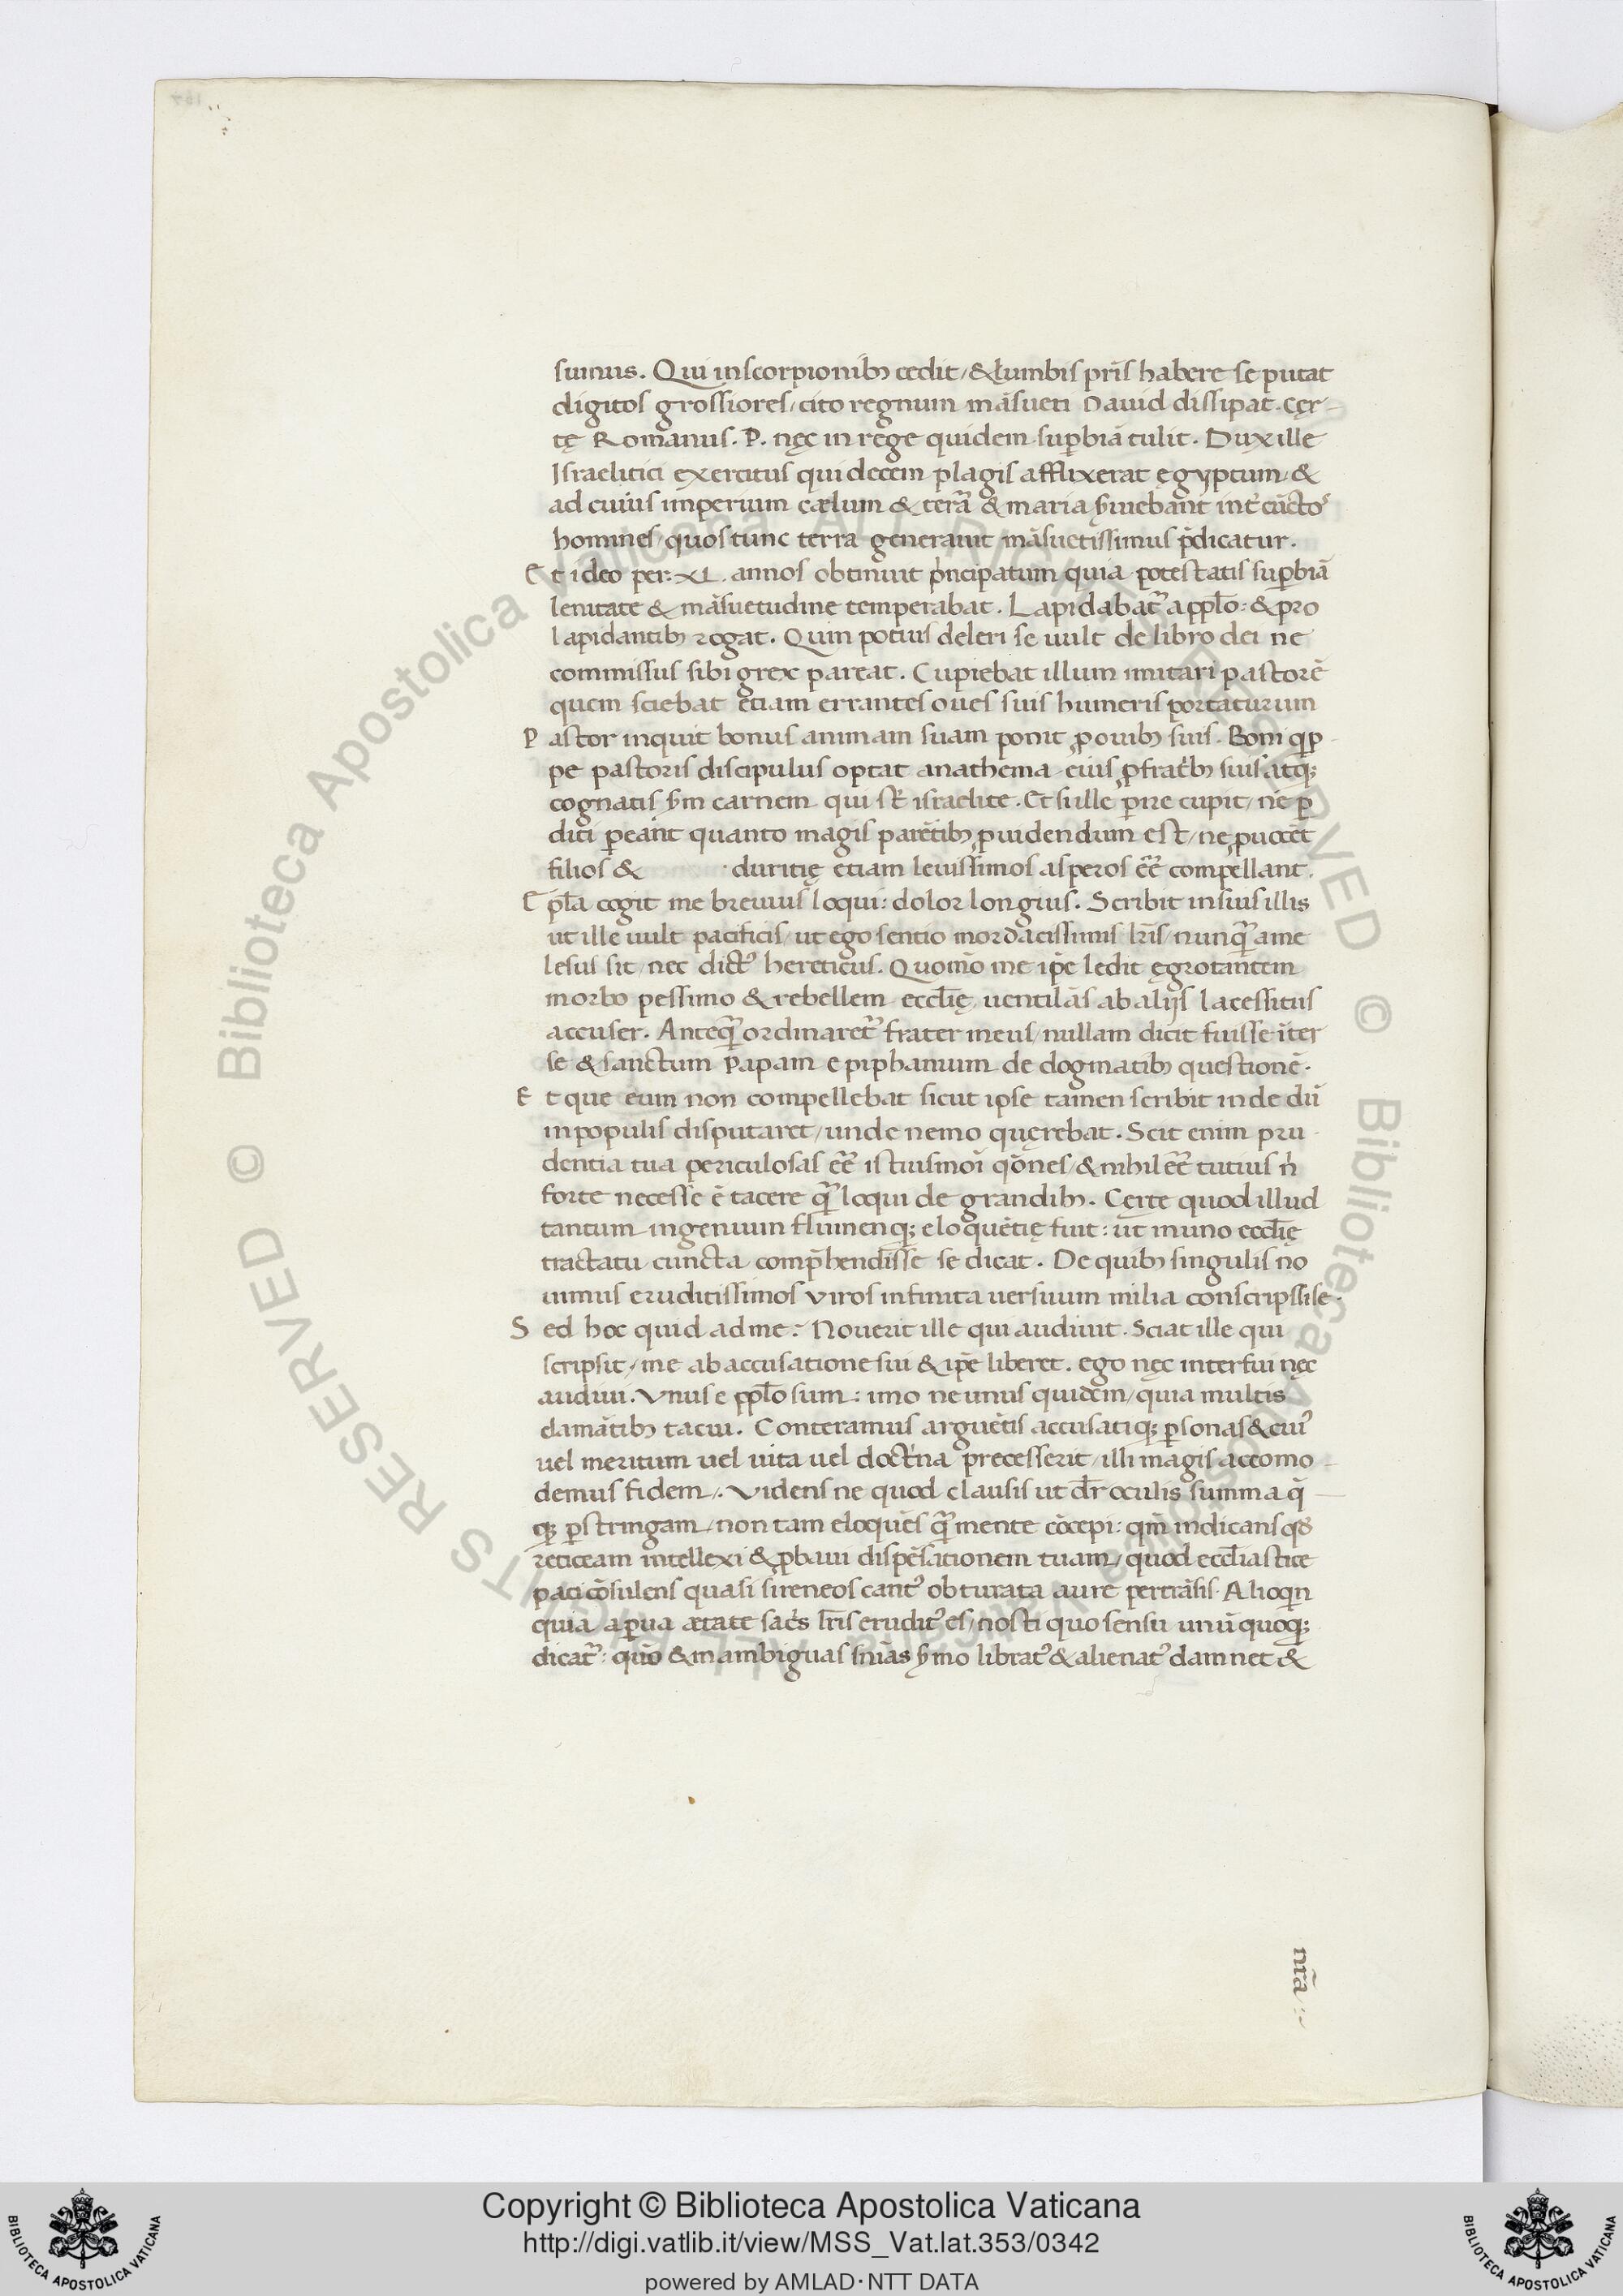 sumus. Qui in scorpionibꝫ cedit / & lumbis pr̄is habere se putat
digitos grossiores / cito regnum māsueti Dauid dissipat. Cęr-
tę Romanus. P. nęc in rege quidem suꝑbiā tulit. Dux ille
Israelitici exercitus qui decem plagis afflixerat ęgyptum / &
ad cuius imperium cælum & terā & maria ẜuiebant int̄ cūctoꝰ
homines / quos tunc terra generauit māsuetissimus p̄dicatur.
Et ideo per: XL. annos obtinuit pͥncipatum quia potestatis suꝑbiā
lenitate & māsuetudine temperabat. Lapidabat᷑ a ppl̄o: & pro
lapidantibꝫ rogat. Quin potius deleri se uult de libro dei ne
commissus sibi grex pareat. Cupiebat illum imitari pastorē
quem sciebat etiam errantes oues suis humeris portaturum
Pastor inquit bonus animam suam ponit ꝓ ouibꝫ suis. Boni qͥp
pe pastoris discipulus optat anathema eius ꝓ frat̄bꝫ suis atqꝫ
cognatis ẜm carnem qui st̄ israelite. Et si ille ꝑire cupit / ne ꝑ
diti ꝑeant quanto magis parētibꝫ ꝓuidendum est / ne ꝓuocēt
filios & duritię etiam leuissimos asperos eē̄ compellant.
Epl̄a cogit me breuius loqui: dolor longius. Scribit in suis illis
ut ille uult pacificis / ut ego sentio mordacissimis lr̄is / nunqᷓ a me
lesus sit / nec dictꝰ hereticus. Quomō me ip̄e ledit ęgrotantem
morbo pessimo & rebellem eccl̄ię uentilās ab alijs lacessitus
accuser. Anteqᷓ ordinaret᷑ frater meus / nullam dicit fuisse īter
se & sanctum Papam epiphanium de dogmatibꝫ questionē.
Et que eum non compellebat sicut ipse tamen scribit inde dū
in populis disputaret / unde nemo quęrebat. Scit enim pru
dentia tua periculosas eē̄ istiusmōi qōnes / & nihil eē̄ tutius nͥ
forte necesse ē tacere qᷓ loqui de grandibꝫ. Cęrte quod illud
tantum ingenium flumenqꝫ eloquētię fuit: ut in uno eccl̄ię
tractatu cuncta comp̄hendisse se dicat. De quibꝫ singulis no
uimus eruditissimos viros infinita uersuum milia conscripssise.
Sed hoc quid ad me: Nouerit ille qui audiuit. Sciat ille qui
scripsit / me ab accusatione sui & ip̄e liberet. ego nęc interfui nęc
audiui. Vnus e ppl̄o sum: imo ne unus quidem / quia multis
damātibꝫ tacui. Conteramus arguētis accusatiqꝫ ꝑsonas & cuiꝰ
uel meritum uel uita uel doctͥna precesserit / illi magis accomo-
demus fidem. Videns ne quod clausis ut dr̄ oculis summa q̄
qꝫ ꝑstringam / non tam eloquēs qᷓ mente cōcepi: qm̄ indicans qđ
reticeam intellexi & ꝓbaui dispēsationem tuam / quod eccl̄iastice
paci cōsulens quasi sireneos cantꝰ obturata aure pertrāsis. Alioqͥn
quia a ꝑua ætate sac̄s lr̄is eruditꝰ es / nosti quo sensu unūquoqꝫ
dicat᷑: quō & in ambiguas sn̄ias ẜmo libratꝰ & alienatꝰ damnet &
nr̄a
Copyright © Biblioteca Apostolica Vaticana
http://digi.vatlib.it/view/MSS_Vat.lat.353/0342
powered by AMLAD·NTT DATA
BIBLIOTECA APOSTOLICA VATICANA
BIBLIOTECA APOSTOLICA VATICANA
© Biblioteca Apostolica Vaticana ALL RIGHTS RESERVED © Biblioteca Apostolica Vaticana ALL RIGHTS RESERVED